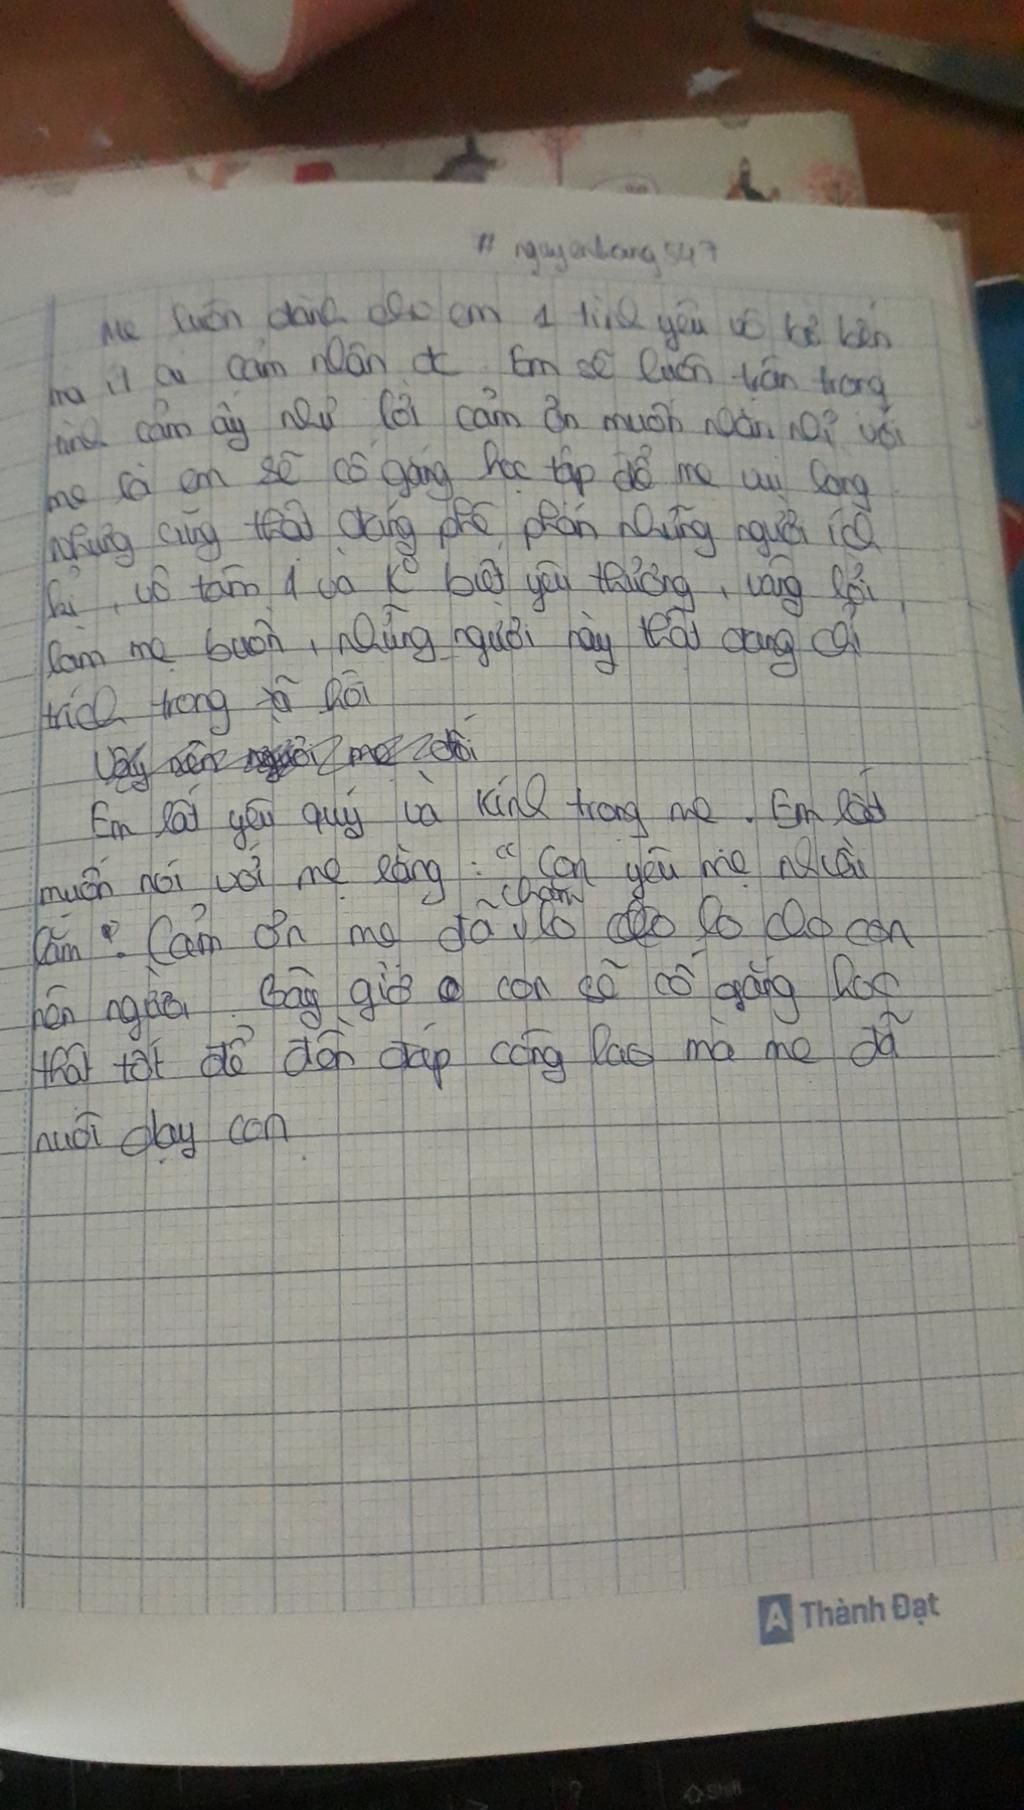 # nguyenbang547
Mẹ luôn dành cho em 1 tình yêu vô bờ bến
mà ít ai cảm nhận đc Em sẽ luôn trân trọng
tình cảm ấy như lời cảm ơn muốn nhắn nhủ với
mẹ là em sẽ cố gắng học tập để mẹ vui lòng
nhưng cũng thật đáng phê phán những người ích
kỉ, vô tâm, và k biết yêu thương, vâng lời,
làm mẹ buồn, những người này thật đáng chỉ
trích trong xã hội
Vậy nên người mẹ đối
Em rất yêu quý và kính trọng mẹ. Em rất
muốn nói với mẹ rằng: "Con yêu mẹ nhiều
lắm". Cảm ơn mẹ đã chăm lo cho con
nên người. Bây giờ con sẽ cố gắng học
thật tốt để đền đáp công lao mà mẹ đã
nuôi dạy con
Thành Đạt
Shift